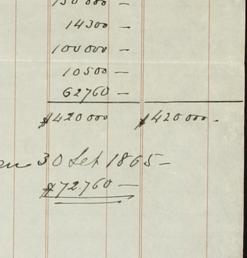 150000 —
14300 —
100000 —
10500 —
62760 —
$420000 $420000 -
30 Set 1865 —
$72,760 —